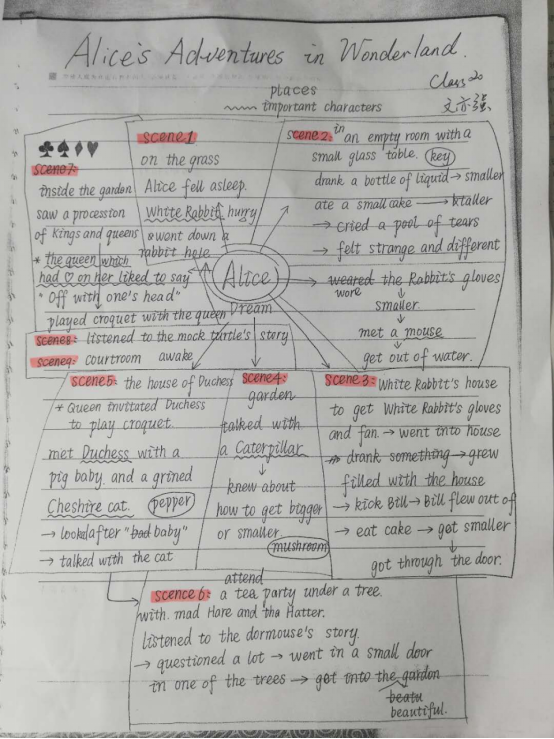 Alice's Adventures in Wonderland.
Class 20
places
important characters
scene 1
on the grass
Alice fell asleep.
White Rabbit hurry
& went down a
rabbit hole
scene 2: in an empty room with a
small glass table. key
drank a bottle of liquid → smaller
ate a small cake → taller
→ cried a pool of tears
→ felt strange and different
→ weared the Rabbit's gloves
wore
smaller
met a mouse
get out of water.
Alice
Dream
scene 7:
inside the garden
saw a procession
of Kings and queens
* the queen which
had ♡ on her liked to say
"Off with one's head"
played croquet with the queen
scene 8: listened to the mock turtle's story
scene 9: courtroom awake
scene 5: the house of Duchess
* Queen invitated Duchess
to play croquet.
met Duchess with a
pig baby and a grined
Cheshire cat. pepper
→ look after "bad baby"
→ talked with the cat
scene 4:
garden
talked with
a Caterpillar
knew about
how to get bigger
or smaller
mushroom
scene 3: White Rabbit's house
to get White Rabbit's gloves
and fan. → went into house
→ drank something → grew
filled with the house
→ kick Bill → Bill flew out of
→ eat cake → got smaller
got through the door.
attend
scence 6: a tea party under a tree.
with mad Hare and the Hatter.
listened to the dormouse's story.
→ questioned a lot → went in a small door
in one of the trees → get into the garden
beatu
beautiful.